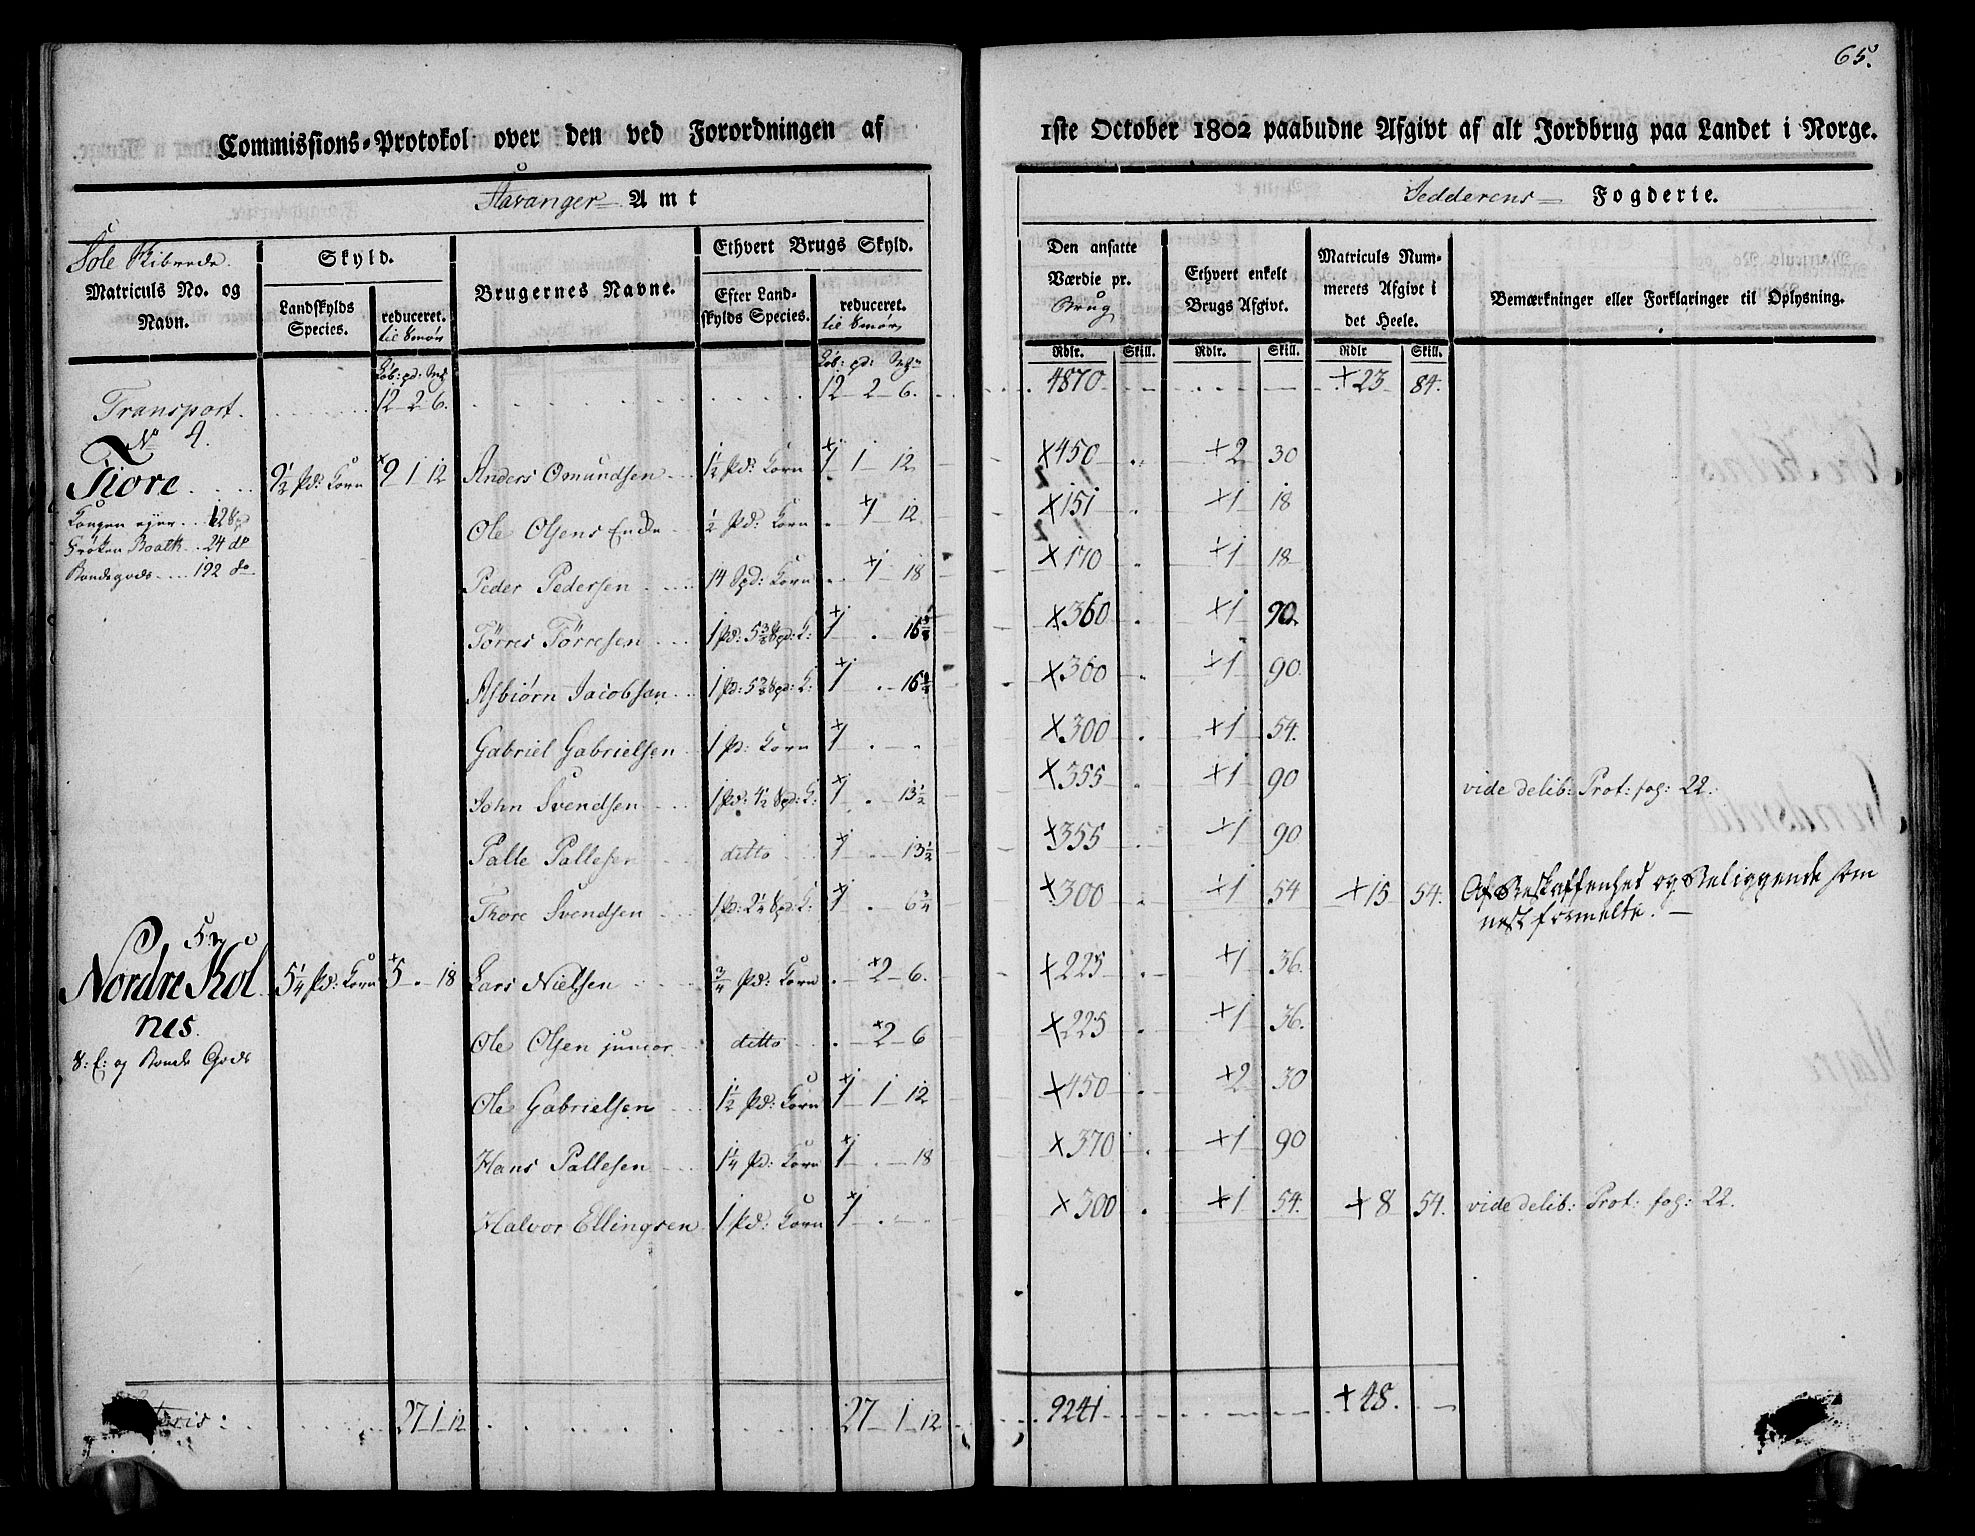 65.
Commissions-Protokol over den ved Forordningen af 1ste October 1802 paabudne Afgivt af alt Jordbrug paa Landet i Norge.
Stavanger Amt
Jedderens Fogderie.
Sole Skibrede.
Matriculs No. og Navn.
Skyld.
Landskylds Species.
reduceret.
til Smør
Brugernes Navne.
Ethvert Brugs Skyld.
Efter Landskylds Species.
reduceret.
til Smør
Den ansatte Værdie pr. Brug
Ethvert enkelt Brugs Afgivt.
Matriculs Nummerets Afgivt i det Heele.
Bemærkninger eller Forklaringer til Oplysning.
Rdlr. Skill. Rdlr. Skill. Rdlr Skill.
Transport. 12 - 2 - 6. 12 - 2 - 6. 4870 +23 84.
No 4.
Tiore 9½ Pd: Korn +9 1 12 Anders Omundsen 1½ Pd: Korn +1 - 1 - 12 +450 +2 30
Kongen ejer
Frøken Boalk 24 do
Bondegods 192 do
Ole Olsens Enke ½ Pd: Korn +1 - 12 +151 +1 18
Peder Pedersen 14 Spd: Korn +1 - 18 +170 +1 18
Tørres Tørresen 1 Pd: +360 +1 90
Asbiørn Jacobsen 1 Pd: +360 +1 90
Gabriel Gabrielsen 1 Pd: Korn +1 +300 +1 54.
John Svendsen 1 Pd: 4½ Spd: K: +1 13½ +355 +1 90 vide delib: Prot: fog: 22.
Palle Pallesen ditto +1 13½ +355 +1 90
Thore Svendsen 1 Pd: 2¼ Spd: K: +1 6¾ +300 +1 54 +15 54. Af Beskaffenhed og Beliggende som nest formelte.
5.
Nordre Kolnes 5¼ Pd: Korn +5 . 18 Lars Nielsen ¾ Pd: Korn +2 - 6. +225 +1 36.
S: E: og Bonde Gods
Ole Olsen junior ditto +2 - 6 +225 +1 36.
Ole Gabrielsen 1½ Pd: Korn +1 - 1 - 12 +450 +2 30
Hans Pallesen 1¼ Pd: Korn +1 - 18 +370 +1 90
Halvor Ellingsen 1 Pd: Korn +1 +300 +1 54. +8 54. vide delib: Prot: fog: 22.
27 1 12 27 - 1 - 12 9241 +48.